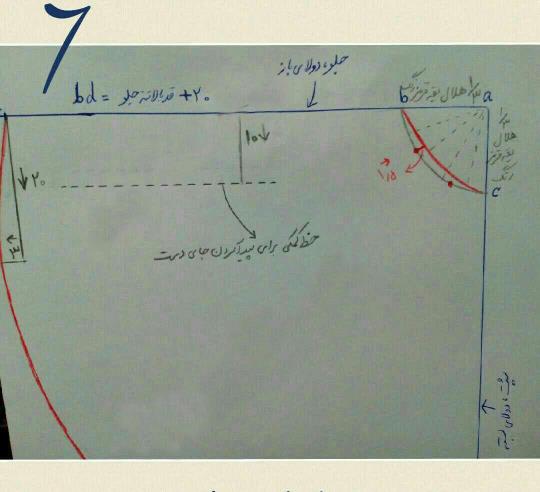 7
جلو، دولای باز
bd = قد بالاتنه جلو + ۲۰
b
۱/۲ هلال یقه قرقرنگ
a
۱/۲
هلال
یقه
c
۱۰
۲۰
۳
۱/۵
خط کمکی برای پیدا کردن جای دست
پشت، دولای بسته